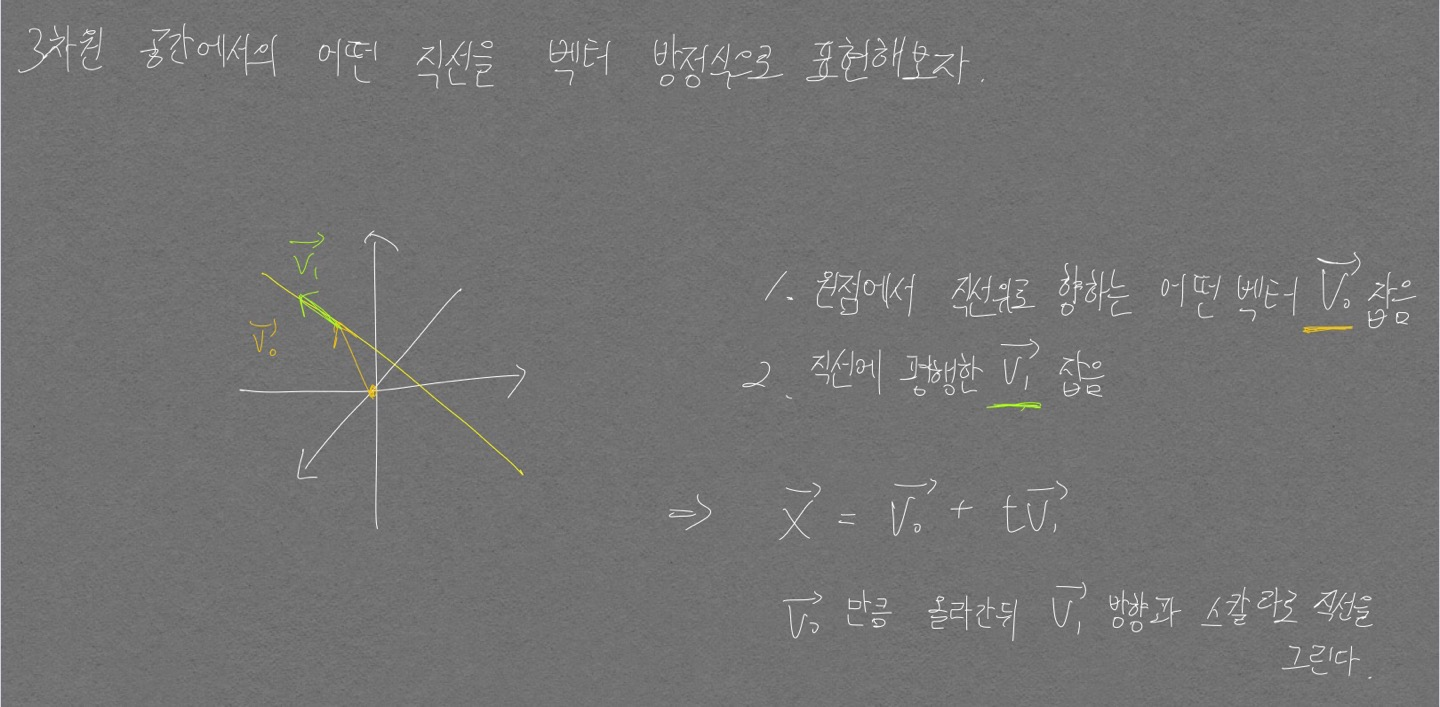 3차원 공간에서의 어떤 직선을 벡터 방정식으로 표현해보자.
V₁
V₀
1. 원점에서 직선위로 향하는 어떤 벡터 V₀ 잡음
2. 직선에 평행한 V₁ 잡음
⇒ X = V₀ + tV₁
V₀ 만큼 올라간뒤 V₁ 방향과 스칼라로 직선을
그린다.